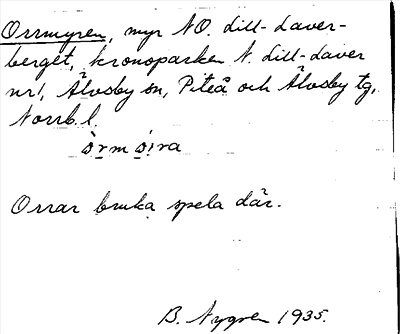 Orrmyren, myr NO. Lill-Laver-
berget, kronoparken N. Lill-Laver
nr1, Älvsby sn, Piteå och Älvsby tg,
Norrb. l.
Orrar bruka spela där.
B. Nygren 1935.